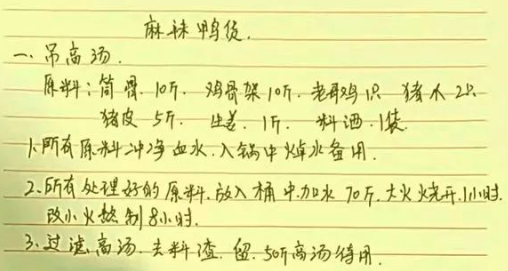 麻辣鸭货.
一、吊高汤.
原料：筒骨.10斤. 鸡骨架10斤. 老母鸡1只 猪爪2只
猪皮 5斤. 生姜.1斤. 料酒.1袋.
1.所有原料冲净血水.入锅中焯水备用.
2.所有处理好的原料.放入桶中.加水 70斤.大火烧开.1小时.
改小火熬制8小时.
3.过滤高汤.去料渣.留.50斤高汤待用.